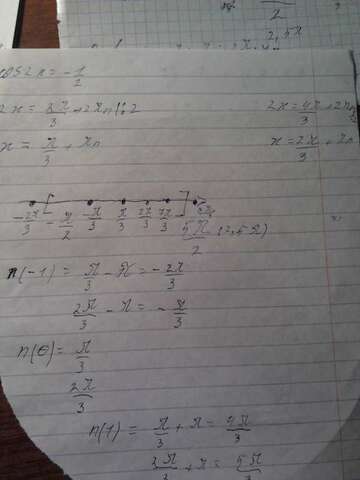 2,5π
2
cos2x = -1/2
2x = 2π/3 + 2πn |:2
2x = 4π/3 + 2πn
x = π/3 + πn
x = 2π/3 + πn
-2π/3 -π/2 -π/3 π/3 2π/3 7π/3
5π/2 (2,5π)
n(-1) = π/3 - π = -2π/3
2π/3 - π = -π/3
n(0) = π/3
2π/3
n(1) = π/3 + π = 4π/3
2π/3 + π = 5π/3